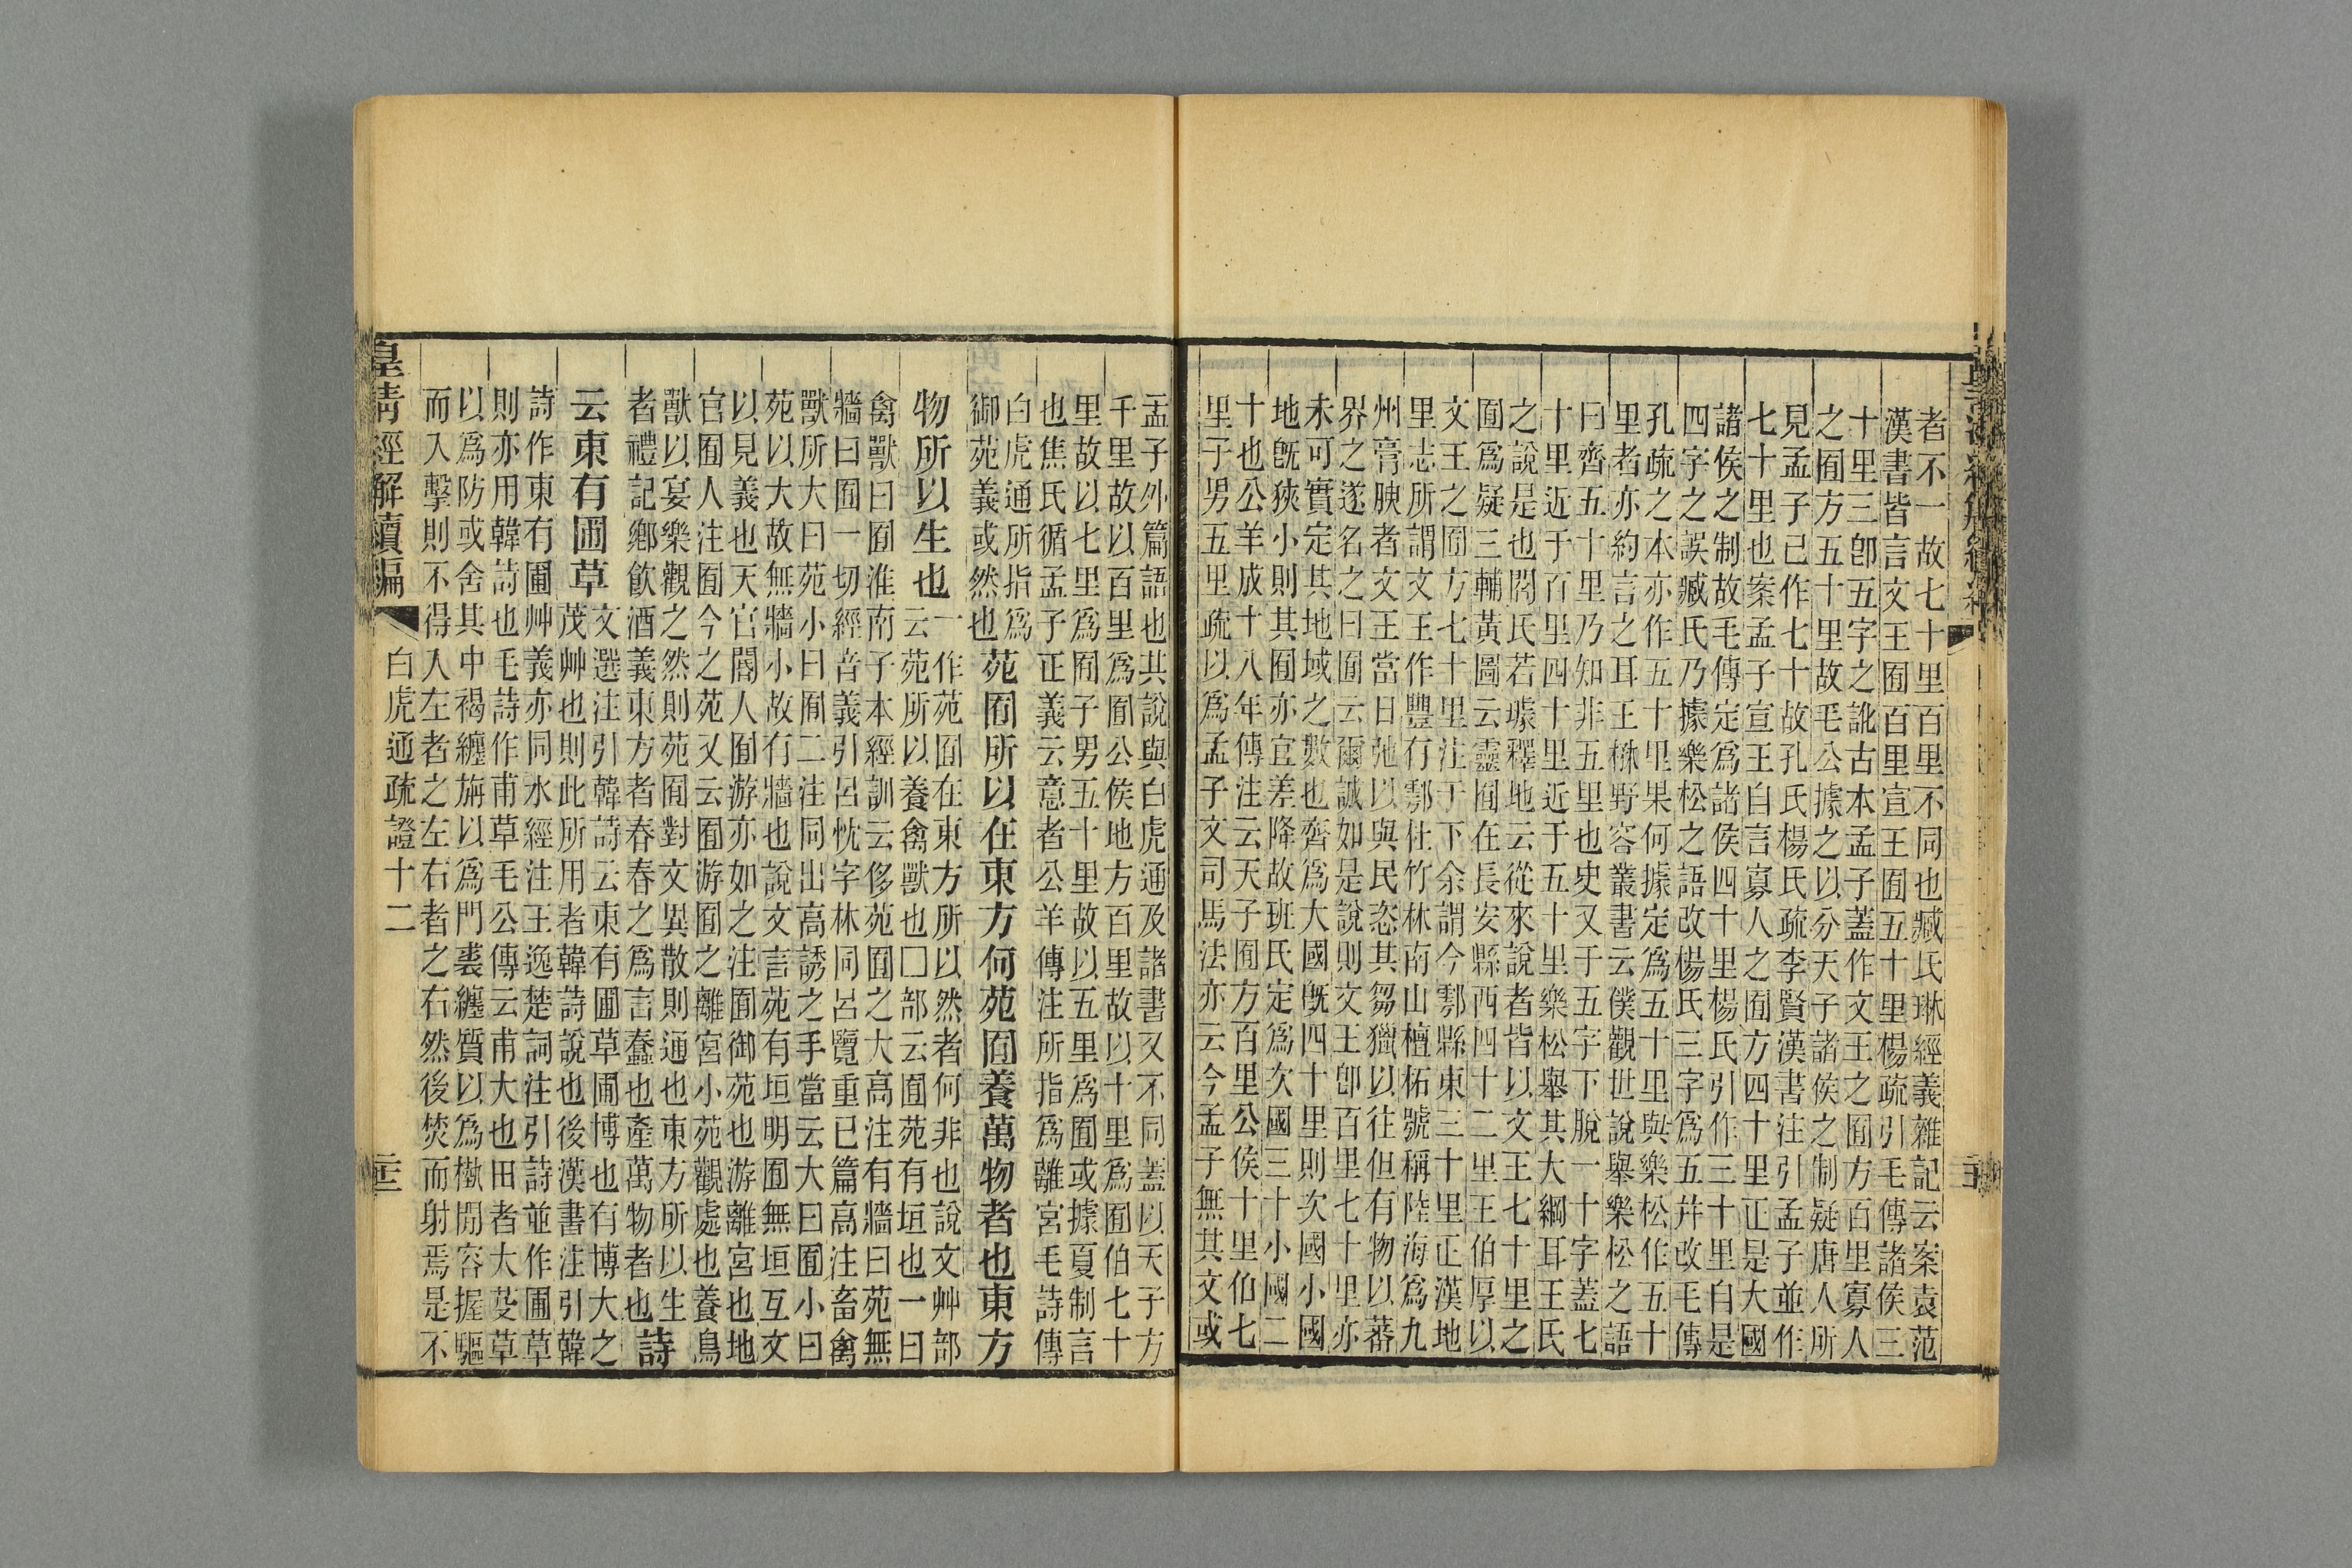 者不一故七十里百里不同也臧氏琳經義雜記云案袁范
漢書皆言文王囿百里宣王囿五十里楊疏引毛傳諸侯三
十里三卽五字之訛古本孟子蓋作文王之囿方百里寡人
之囿方五十里故毛公據之以分天子諸侯之制疑唐人所
見孟子已作七十故孔氏楊氏疏李賢漢書注引孟子並作
七十里也案孟子宣王自言寡人之囿方四十里正是大國
諸侯之制故毛傳定爲諸侯四十里楊氏引作三十里自是
四字之誤臧氏乃據樂松之語改楊氏三字爲五幷改毛傳
孔疏之本亦作五十里果何據定爲五十里與樂松作五十
里者亦約言之耳王楙野客叢書云僕觀世說舉樂松之語
曰齊五十里乃知非五里也史又于五字下脫一十字蓋七
十里近于百里四十里近于五十里樂松舉其大綱耳王氏
之說是也閻氏若璩釋地云從來說者皆以文王七十里之
囿爲疑三輔黃圖云靈囿在長安縣西四十二里王伯厚以
文王之囿方七十里注于下余謂今鄠縣東三十里正漢地
里志所謂文王作豐行鄠杜竹林南山檀柘號稱陸海爲九
州膏腴者文王當日弛以與民恣其芻獵以往但有物以蕃
界之遂名之曰囿云爾誠如是說則文王卽百里七十里亦
未可實定其地域之數也齊爲大國旣四十里則次國小國
地旣狹小則其囿亦宜差降故班氏定爲次國三十小國二
十也公羊成十八年傳注云天子囿方百里公侯十里伯七
里子男五里疏以爲孟子文司馬法亦云今孟子無其文或
孟子外篇語也其說與白虎通及諸書又不同蓋以天子方
千里故以百里爲囿公侯地方百里故以十里爲囿伯七十
里故以七里爲囿子男五十里故以五里爲囿或據夏制言
也焦氏循孟子正義云意者公羊傳注所指爲離宮毛詩傳
白虎通所指爲
御苑義或然也
苑囿所以在東方何苑囿養萬物者也東方
物所以生也
一作苑囿在東方所以然者何非也說文艸部
云苑所以養禽獸也□部云囿苑有垣也一曰
禽獸曰囿淮南子本經訓云侈苑囿之大高注有牆曰苑無
牆曰囿一切經音義引呂忱字林同呂覽重已篇高注畜禽
獸所大曰苑小曰囿二注同出高誘之手當云大曰囿小曰
苑以大故無牆小故有牆也說文言苑有垣明囿無垣互文
以見義也天官閽人囿游亦如之注囿御苑也游離宮也地
官囿人注囿今之苑又云囿游囿之離宮小苑觀處也養鳥
獸以宴樂觀之然則苑囿對文異散則通也東方所以生
者禮記鄉飲酒義東方者春春之爲言蠢也產萬物者也
詩
云東有圃草
文選注引韓詩云東有圃草圃博也有博大之
茂艸也則此所用者韓詩說也後漢書注引韓
詩作東有圃艸義亦同水經注王逸楚詞注引詩並作圃草
則亦用韓詩也毛詩作甫草毛公傳云甫大也田者大芟草
以爲防或舍其中褐纏旃以爲門裘纏質以爲槸閒容握驅
而入擊則不得入左者之左右者之右然後焚而射焉是不
皇清經解續編
白虎通疏證十二